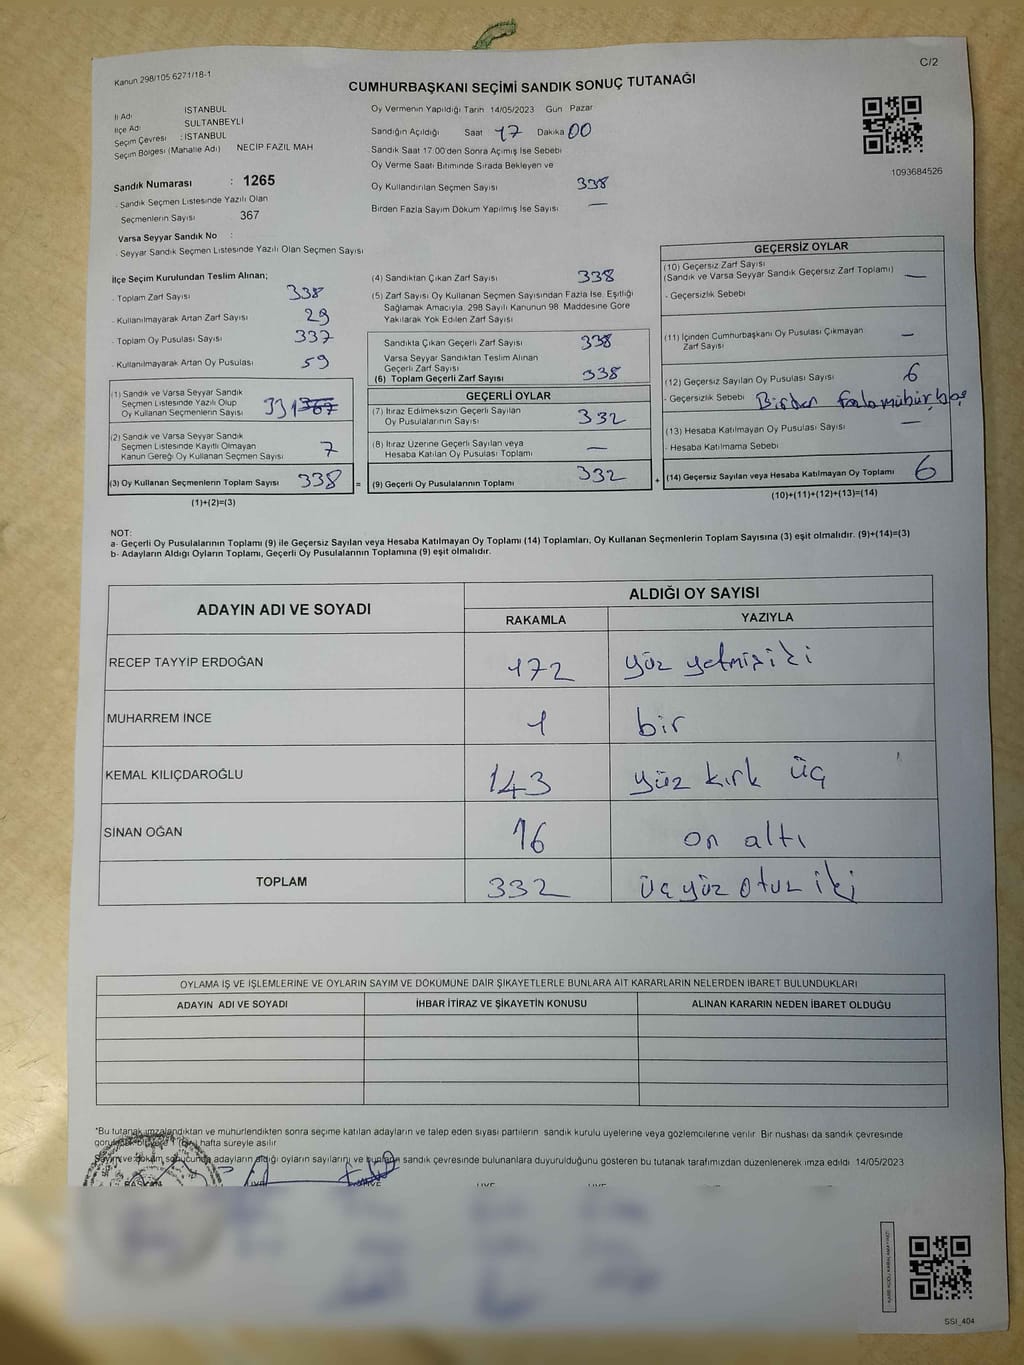 Kanun 298/105 6271/18-1
C/2
CUMHURBAŞKANI SEÇİMİ SANDIK SONUÇ TUTANAĞI
İl Adı İSTANBUL
İlçe Adı SULTANBEYLİ
Seçim Çevresi : İSTANBUL
Seçim Bölgesi (Mahalle Adı) NECİP FAZIL MAH
Sandık Numarası : 1265
Sandık Seçmen Listesinde Yazılı Olan
Seçmenlerin Sayısı 367
Varsa Seyyar Sandık No :
Seyyar Sandık Seçmen Listesinde Yazılı Olan Seçmen Sayısı
Oy Vermenin Yapıldığı Tarih 14/05/2023 Gün Pazar
Sandığın Açıldığı Saat 17 Dakika 00
Sandık Saat 17:00'den Sonra Açılmış İse Sebebi
Oy Verme Saati Bitiminde Sırada Bekleyen ve
Oy Kullandırılan Seçmen Sayısı 338
Birden Fazla Sayım Döküm Yapılmış İse Sayısı —
1093684526
İlçe Seçim Kurulundan Teslim Alınan;
- Toplam Zarf Sayısı 338
- Kullanılmayarak Artan Zarf Sayısı 29
- Toplam Oy Pusulası Sayısı 337
- Kullanılmayarak Artan Oy Pusulası 59
(1) Sandık ve Varsa Seyyar Sandık
Seçmen Listesinde Yazılı Olup
Oy Kullanan Seçmenlerin Sayısı 331 367
(2) Sandık ve Varsa Seyyar Sandık
Seçmen Listesinde Kayıtlı Olmayan
Kanun Gereği Oy Kullanan Seçmen Sayısı 7
(3) Oy Kullanan Seçmenlerin Toplam Sayısı 338
(1)+(2)=(3)
(4) Sandıktan Çıkan Zarf Sayısı 338
(5) Zarf Sayısı Oy Kullanan Seçmen Sayısından Fazla İse, Eşitliği
Sağlamak Amacıyla, 298 Sayılı Kanunun 98. Maddesine Göre
Yakılarak Yok Edilen Zarf Sayısı
Sandıkta Çıkan Geçerli Zarf Sayısı 338
Varsa Seyyar Sandıktan Teslim Alınan
Geçerli Zarf Sayısı
(6) Toplam Geçerli Zarf Sayısı 338
GEÇERLİ OYLAR
(7) İtiraz Edilmeksizin Geçerli Sayılan
Oy Pusulalarının Sayısı 332
(8) İtiraz Üzerine Geçerli Sayılan veya
Hesaba Katılan Oy Pusulası Toplamı —
= (9) Geçerli Oy Pusulalarının Toplamı 332
GEÇERSİZ OYLAR
(10) Geçersiz Zarf Sayısı
(Sandık ve Varsa Seyyar Sandık Geçersiz Zarf Toplamı) —
- Geçersizlik Sebebi
(11) İçinden Cumhurbaşkanı Oy Pusulası Çıkmayan
Zarf Sayısı —
(12) Geçersiz Sayılan Oy Pusulası Sayısı 6
- Geçersizlik Sebebi Birden
(13) Hesaba Katılmayan Oy Pusulası Sayısı —
- Hesaba Katılmama Sebebi
+ (14) Geçersiz Sayılan veya Hesaba Katılmayan Oy Toplamı 6
(10)+(11)+(12)+(13)=(14)
NOT:
a- Geçerli Oy Pusulalarının Toplamı (9) ile Geçersiz Sayılan veya Hesaba Katılmayan Oy Toplamı (14) Toplamları, Oy Kullanan Seçmenlerin Toplam Sayısına (3) eşit olmalıdır. (9)+(14)=(3)
b- Adayların Aldığı Oyların Toplamı, Geçerli Oy Pusulalarının Toplamına (9) eşit olmalıdır.
ADAYIN ADI VE SOYADI ALDIĞI OY SAYISI
RAKAMLA YAZIYLA
RECEP TAYYİP ERDOĞAN 172 yüz yetmişiki
MUHARREM İNCE 1 bir
KEMAL KILIÇDAROĞLU 143 yüz kırk üç
SİNAN OĞAN 16 on altı
TOPLAM 332 üçyüz otuz iki
OYLAMA İŞ VE İŞLEMLERİNE VE OYLARIN SAYIM VE DÖKÜMÜNE DAİR ŞİKAYETLERLE BUNLARA AİT KARARLARIN NELERDEN İBARET BULUNDUKLARI
ADAYIN ADI VE SOYADI İHBAR İTİRAZ VE ŞİKAYETİN KONUSU ALINAN KARARIN NEDEN İBARET OLDUĞU
*Bu tutanak imzalandıktan ve mühürlendikten sonra seçime katılan adayların ve talep eden siyasi partilerin sandık kurulu üyelerine veya gözlemcilerine verilir. Bir nüshası da sandık çevresinde
hafta süreyle asılır
Sayım ve döküm sonucunda adayların aldığı oyların sayılarını ve bunların sandık çevresinde bulunanlara duyurulduğunu gösteren bu tutanak tarafımızdan düzenlenerek imza edildi 14/05/2023
BAŞKAN ÜYE ÜYE ÜYE ÜYE
SSİ_404